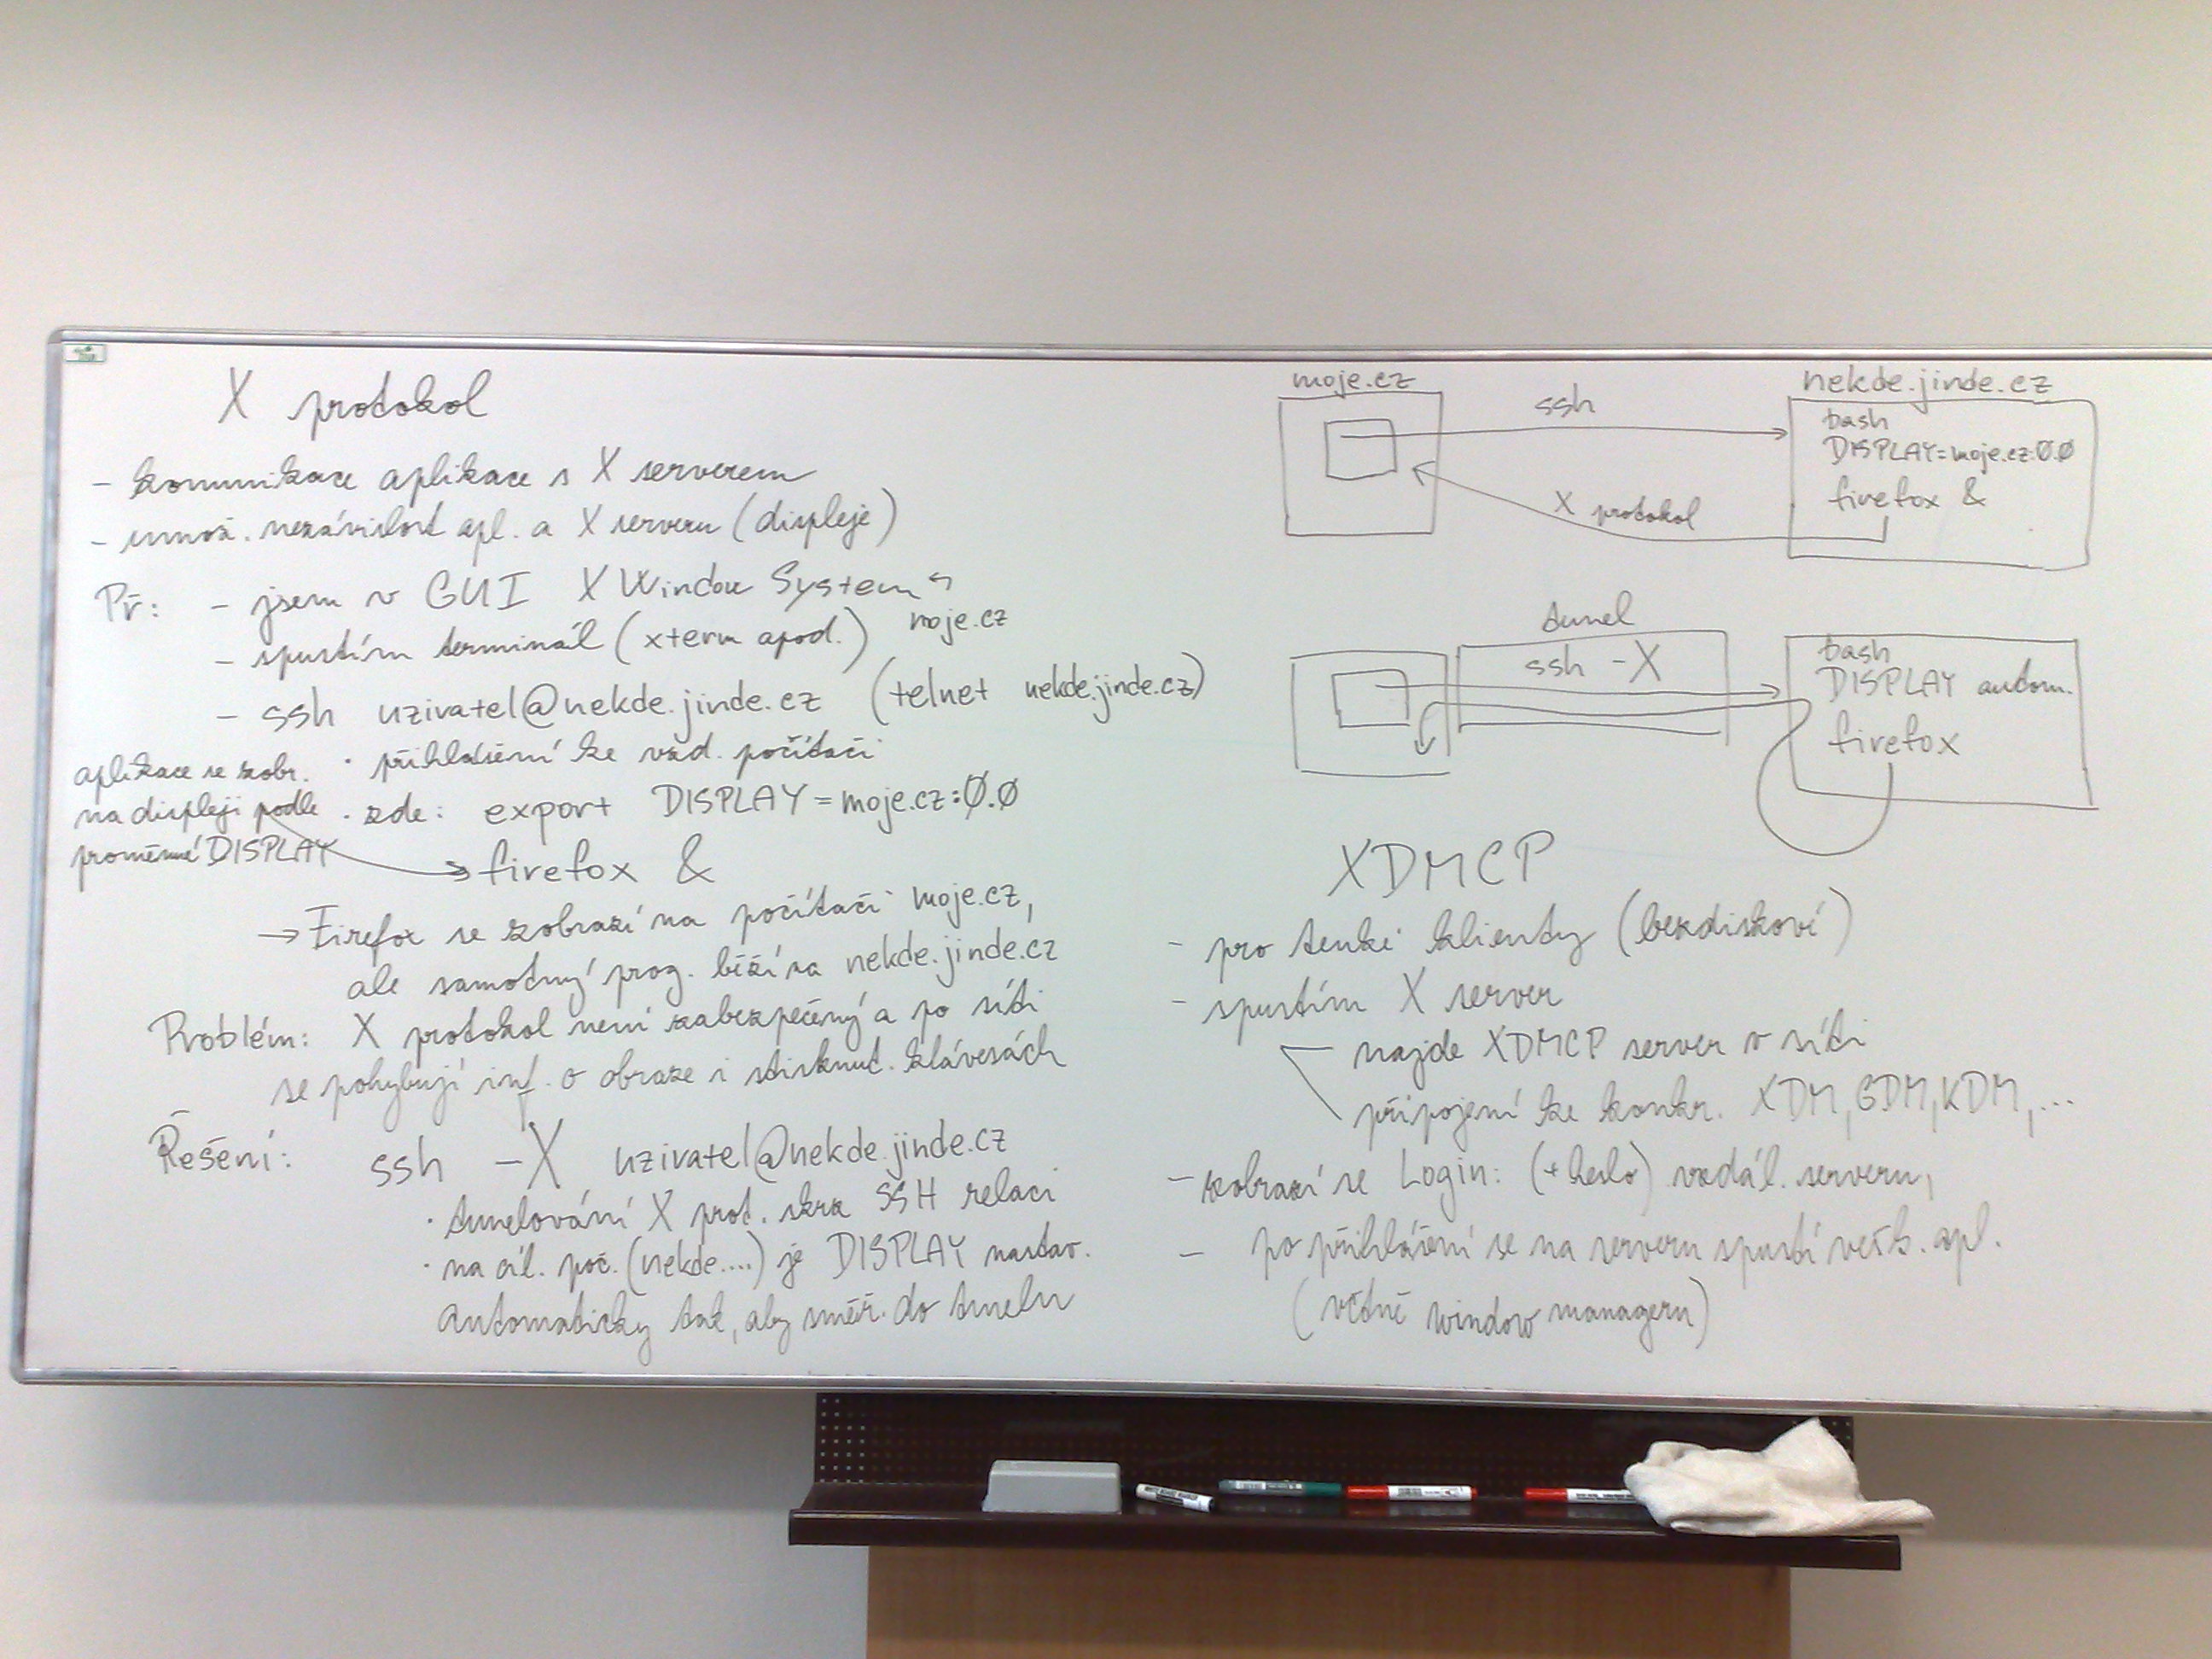 X protokol
- komunikace aplikace s X serverem
- umož. nezávislost apl. a X serveru (displeje)
Př: - jsem v GUI X Window System
moje.cz
- spustím terminál (xterm apod.)
- ssh uzivatel@nekde.jinde.cz (telnet nekde.jinde.cz)
· přihlášení ke vzd. počítači
· zde: export DISPLAY=moje.cz:0.0
firefox &
aplikace se zobr.
na displeji podle
proměnné DISPLAY
→ Firefox se zobrazí na počítači moje.cz,
ale samotný prog. běží na nekde.jinde.cz
Problém: X protokol není zabezpečený a po síti
se pohybují inf. o obraze i stisknut. klávesách
Řešení: ssh -X uzivatel@nekde.jinde.cz
· tunelování X prot. skrz SSH relaci
· na cíl. poč. (nekde....) je DISPLAY nastav.
automaticky tak, aby směř. do tunelu
moje.cz
ssh
X protokol
nekde.jinde.cz
bash
DISPLAY=moje.cz:0.0
firefox &
tunel
ssh -X
bash
DISPLAY autom.
firefox
XDMCP
- pro tenké klienty (bezdiskové)
- spustím X server
najde XDMCP server v síti
připojení ke konkr. XDM, GDM, KDM, ...
- zobrazí se Login: (+heslo) vzdál. serveru,
- po přihlášení se na serveru spustí vešk. apl.
(včtně window manageru)